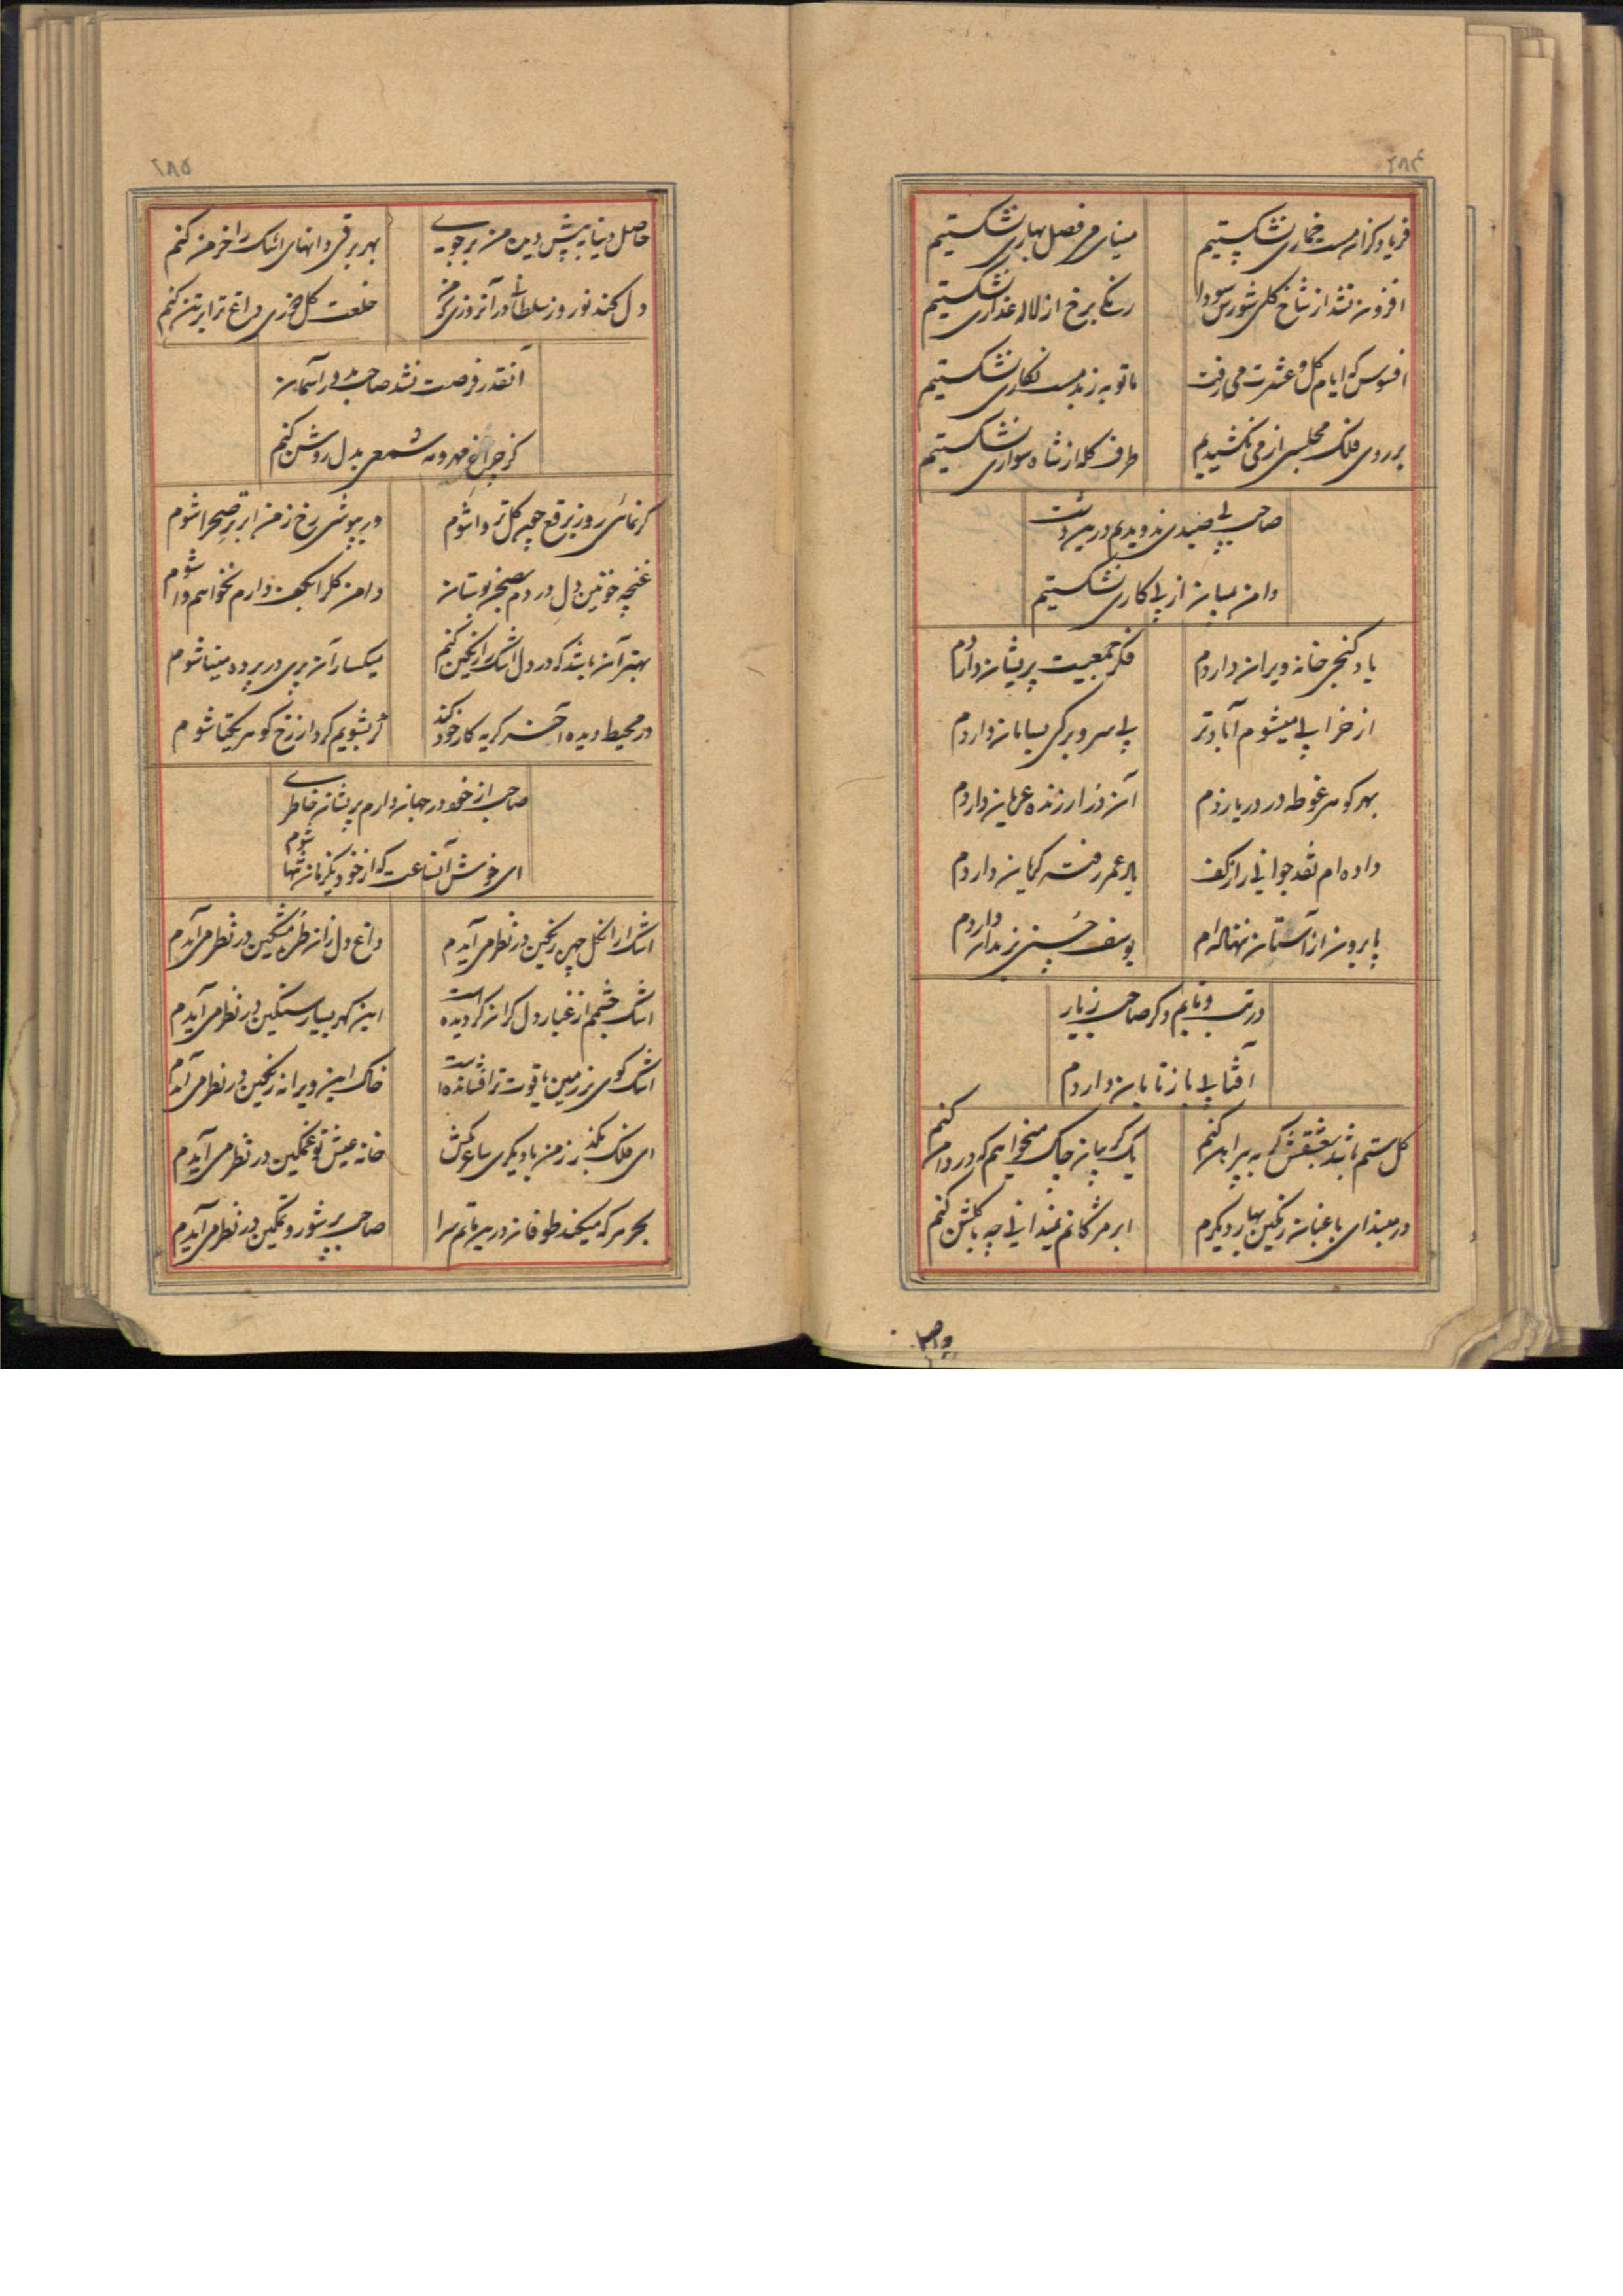 ۲۸۴
فریاد کزان مست خماری نشکستیم
مینای می فصل بهاری نشکستیم
افزون نشد از شاخ گلی شورش سودا
رنگی برخ از لاله عذاری نشکستیم
افسوس که ایام گل و عشرت می رفت
ما توبه ز بدمست نگاری نشکستیم
بر روی فلک مجلسی از می نکشیدیم
طرف کله از شاه سواری نشکستیم
صاحب پی صیدی ندویدیم درین دشت
دامن بمیان از پی کاری نشکستیم
یاد کنجی خانه ویران داردم
فکر جمعیت پریشان داردم
از خرابی میشوم آبادتر
بی سر و برگی بسامان داردم
بهر گوهر غوطه در دریا زدم
آن در ارزنده عریان داردم
داده ام نقد جوانی را ز کف
یاد عمر رفته گریان داردم
پا برون از آستان ننهاده ام
یوسف حسنی بزندان داردم
در تب و تابم دگر صاحب ز یار
آفتابی باز تابان داردم
گل ستم باشد بعشقش گر به پیراهن کنم
یک گریبان چاک میخواهم که در دامن کنم
در مبند ای باغبان رنگین بهار دیگرم
ابر مژگانم نمیدانی چه با گلشن کنم
۲۸۵
حاصل دنیا به پیش دیده من بر جوی
بهر برقی دانهای اشک را خرمن کنم
دل کند نوروز سلطانی در آنروزی که من
خلعت گلدوزی داغ ترا بر تن کنم
آنقدر فرصت نشد صاحب بدور آسمان
کز چراغ مهر و مه شمعی بدل روشن کنم
گر نمائی رو ز برقع چون گل تر واشوم
ور بپوشی رخ ز من ابر تر صحرا شوم
غنچه خونین دل در دم صبح بوستان
دامن گل را بکف دارم نخواهم وا شوم
بهتر آن باشد که در دل اشک را رنگین کنم
میکسار آن پری در پرده مینا شوم
در محیط دیده آخر گریه کار خود کند
گر بشویم گرد از رخ گوهر یکتا شوم
صاحب از خود در جهان دارم پریشان خاطری
ای خوش آنساعت که از خود یکزمان تنها شوم
اشک را از گل چین رنگین در نظر می آیدم
داغ دل زان طره مشکین در نظر می آیدم
اشک چشمم از غبار دل گران گردیده است
این گهر بسیار سنگین در نظر می آیدم
اشک گوی بر زمین یاقوت تر افشانده است
خاک این ویرانه رنگین در نظر می آیدم
ای فلک بگذر ز من با دیگری ساغر بکش
خانه عیش تو غمگین در نظر می آیدم
بحر هر که میکند طوفان درین ماتم سرا
صاحب پر شور و تمکین در نظر می آیدم